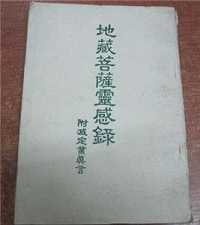 地藏菩薩靈感錄
附滅定業真言